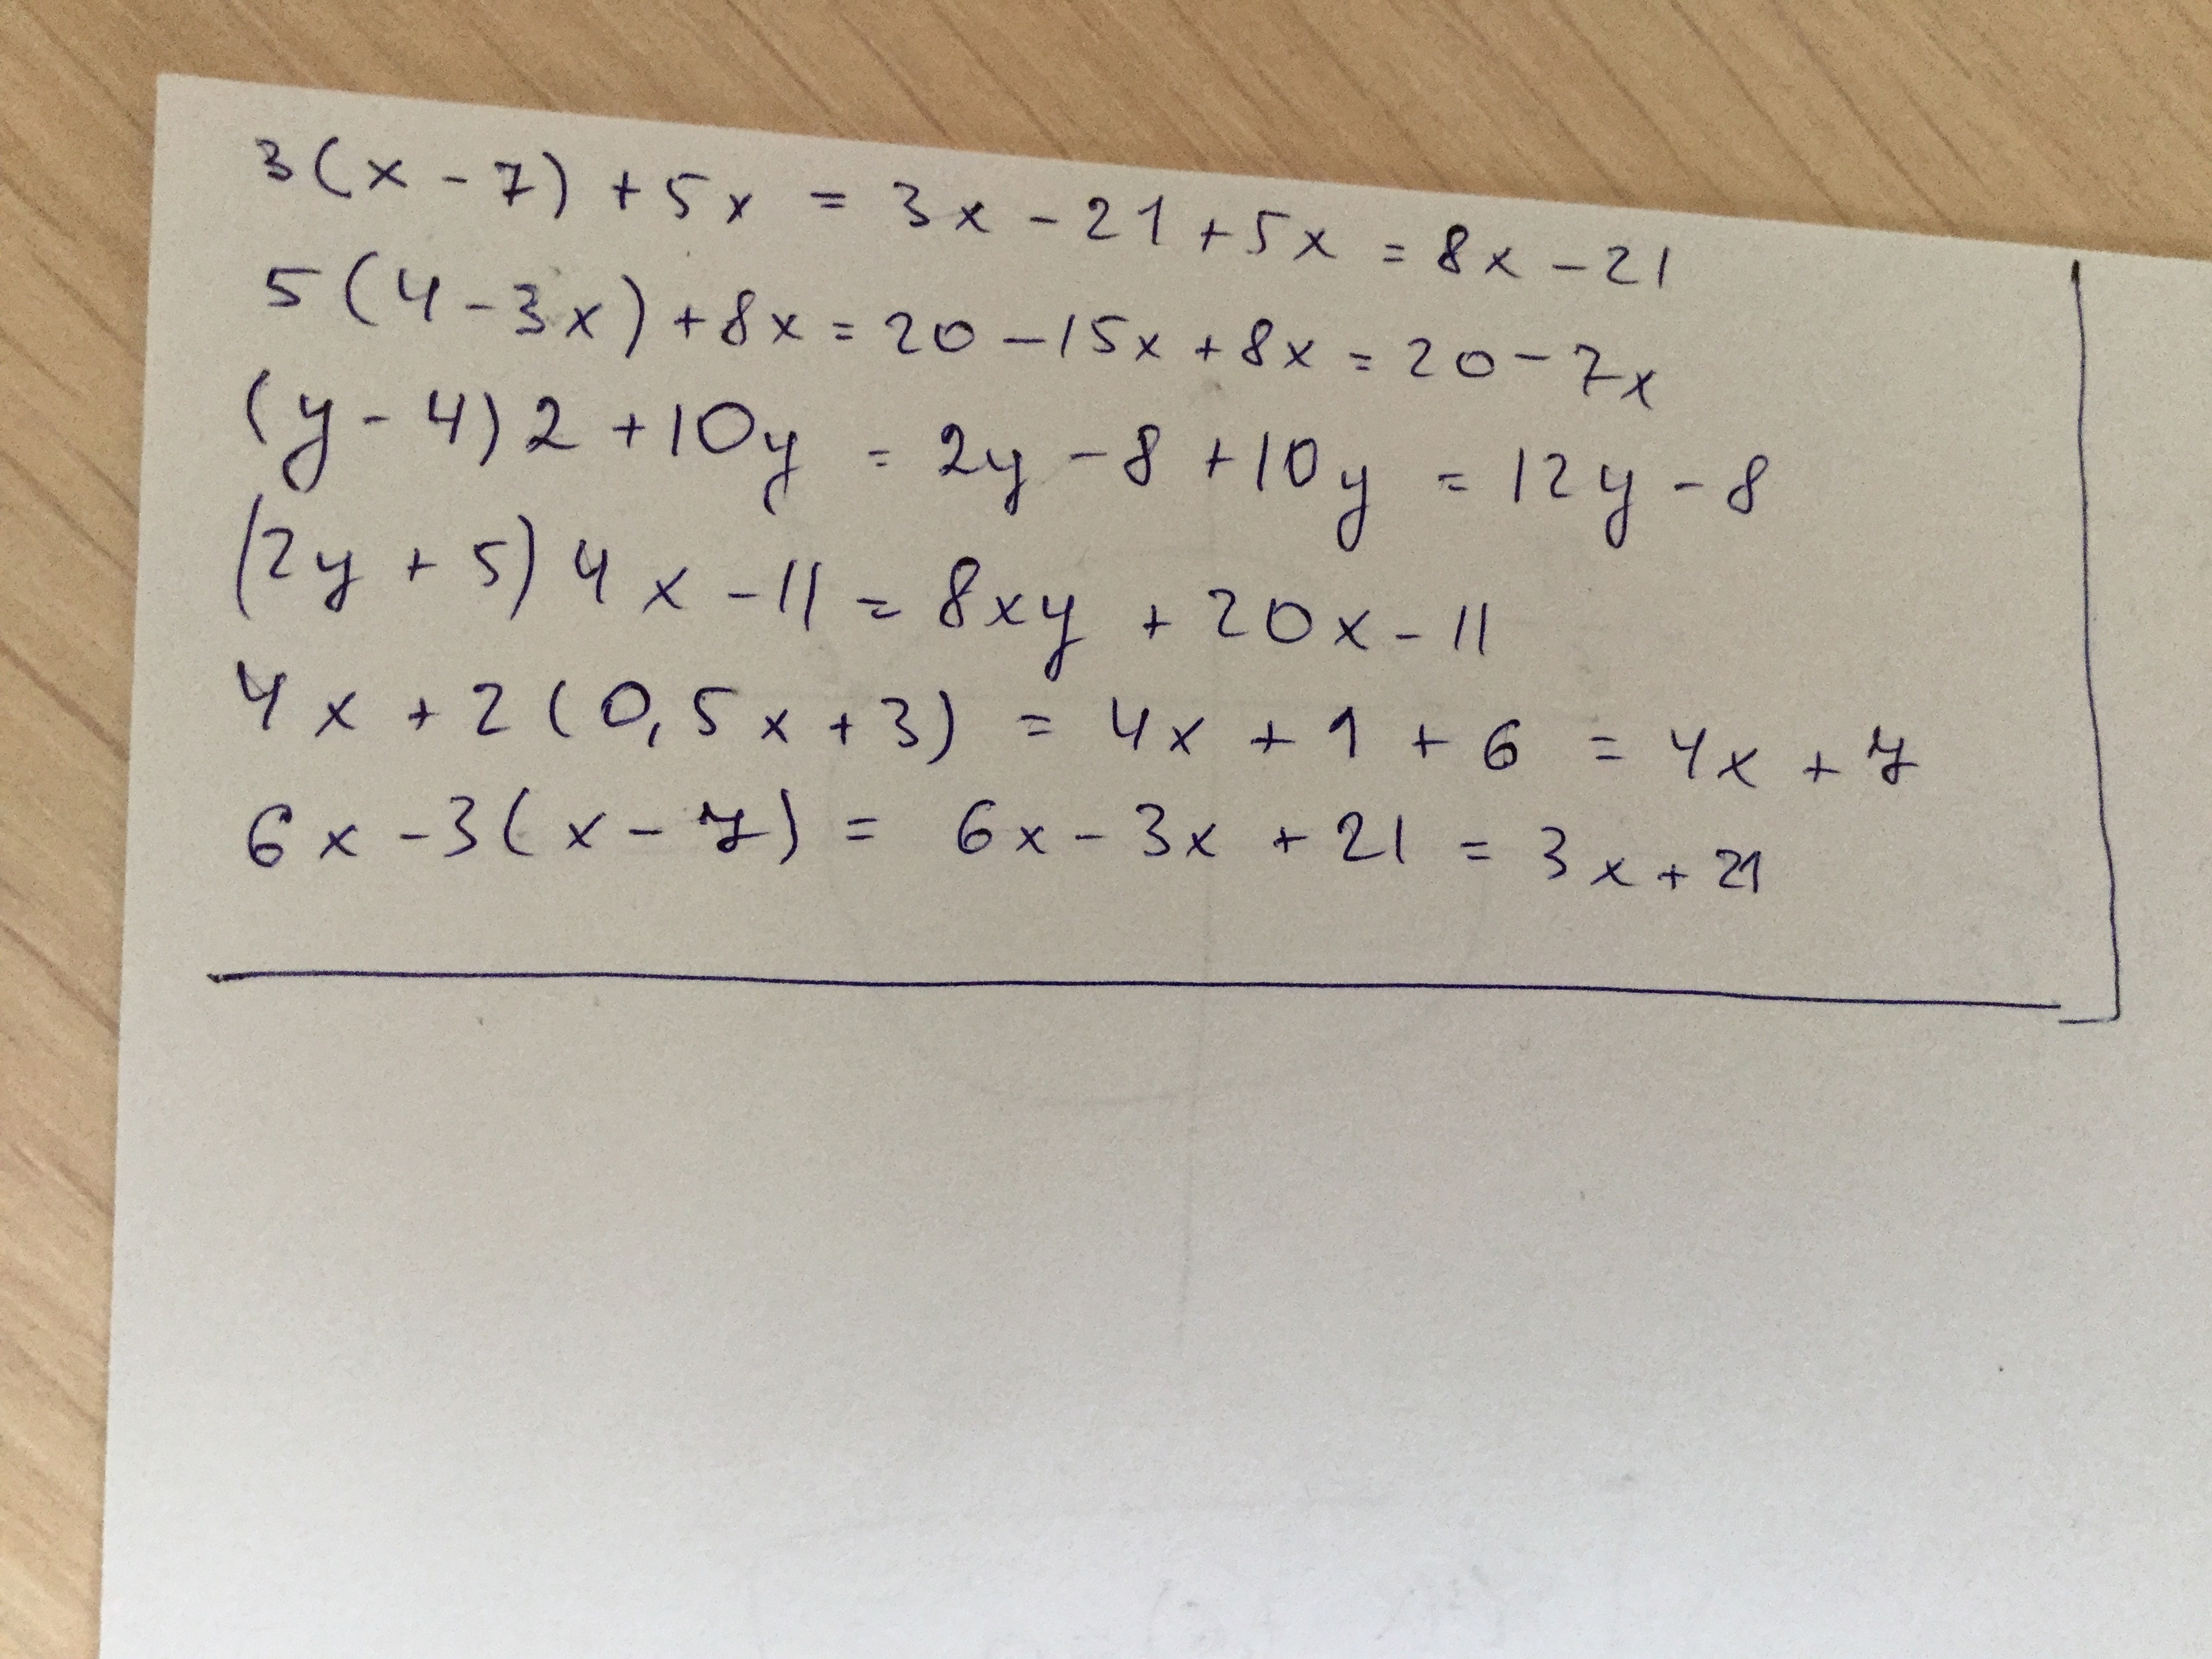 3(x - 7) + 5x = 3x - 21 + 5x = 8x - 21
5(4 - 3x) + 8x = 20 - 15x + 8x = 20 - 7x
(y - 4) 2 + 10y = 2y - 8 + 10y = 12y - 8
(2y + 5) 4x - 11 = 8xy + 20x - 11
4x + 2(0,5x + 3) = 4x + 1 + 6 = 4x + 7
6x - 3(x - 7) = 6x - 3x + 21 = 3x + 21